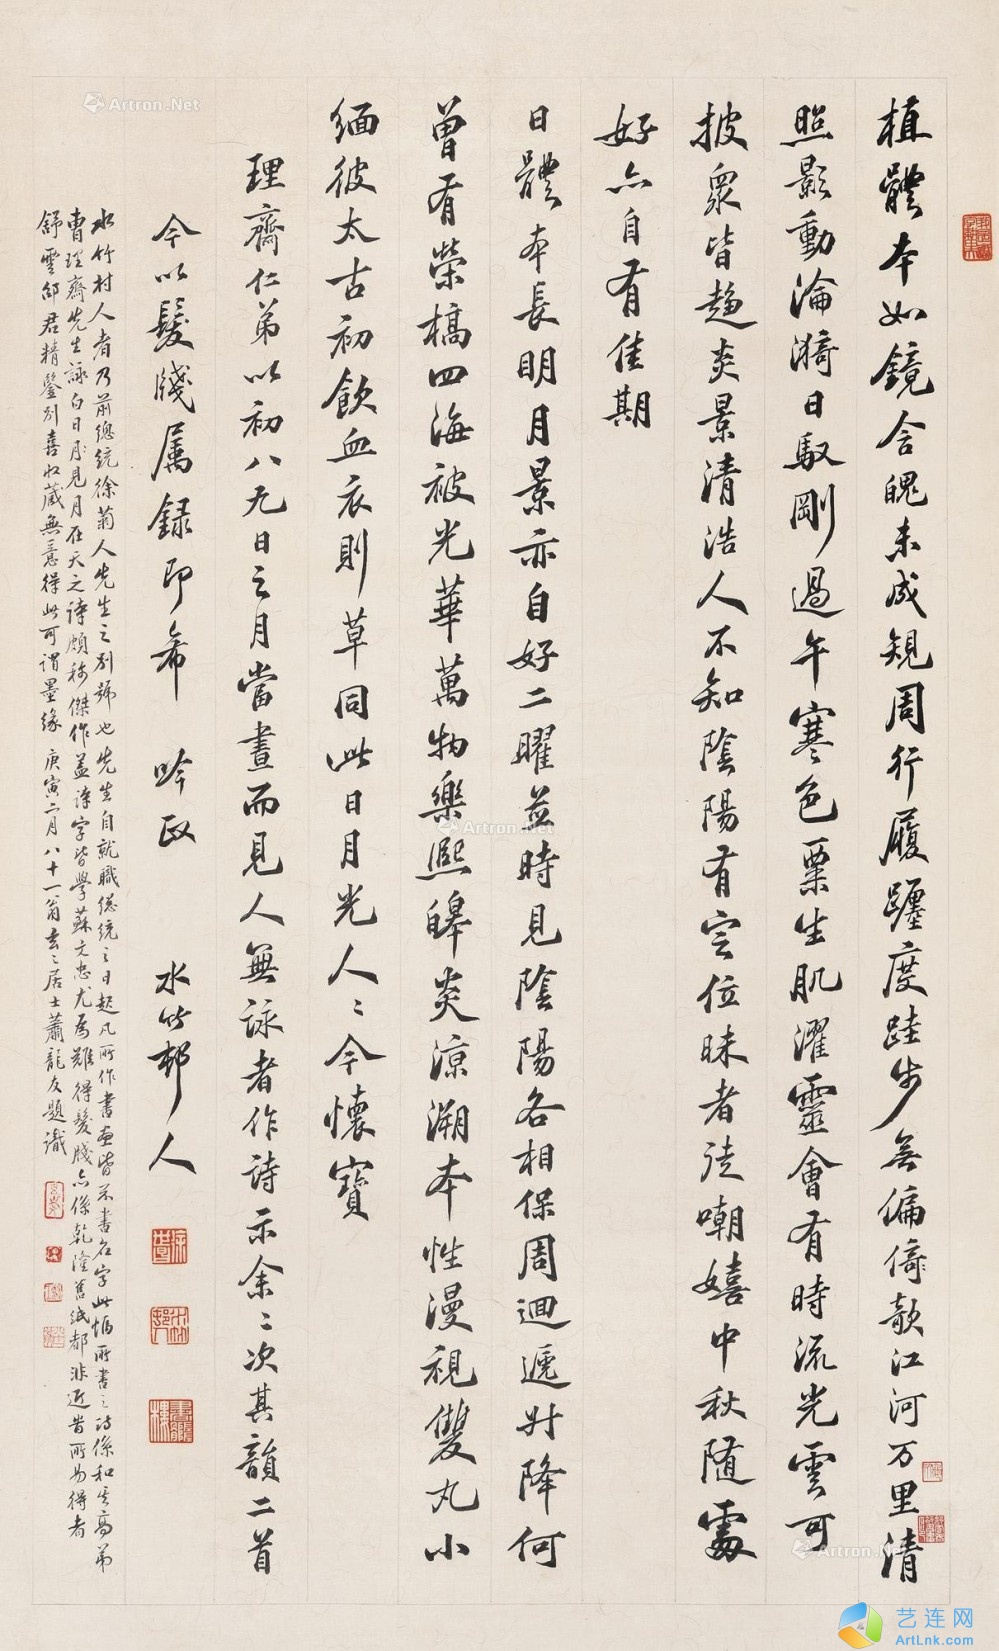 植體本如鏡含魄未成規周行履躔度跬步無偏倚歌江河万里清
照影動淪漪日馭剛過午寒色粟生肌濯靈會有時流光雲可
披衆皆趨炎景清浩人不知陰陽有定位昧者徒嘲嬉中秋隨處
好亦自有佳期
日體本長明月景亦自好二曜並時見陰陽各相保周迴遞升降何
曾有榮槁四海被光華萬物樂熙皞炎涼溯本性漫視雙丸小
緬彼太古初飲血衣則草同此日月光人〻今懷寶
理齋仁弟以初八九日之月當晝而見人無詠者作詩示余〻次其韻二首
今以髮牋属録即希 吟政 水竹邨人
水竹村人者乃前總統徐菊人先生之別號也先生自就職總統之日起凡所作書画皆不書名字此幅所書之詩係和其高弟
曹理齋先生詠白日所見月在天之詩頗稱傑作蓋詩字皆學蘇文忠尤為難得髮牋亦係乾隆舊紙都非近省所易得者
舒雲邰君精鑒別喜收藏無意得此可謂墨緣 庚寅二月八十一翁玄〻居士蕭龍友題識
Artron.Net
Artron.Net
Artron.Net
艺连网
ArtLnk.com